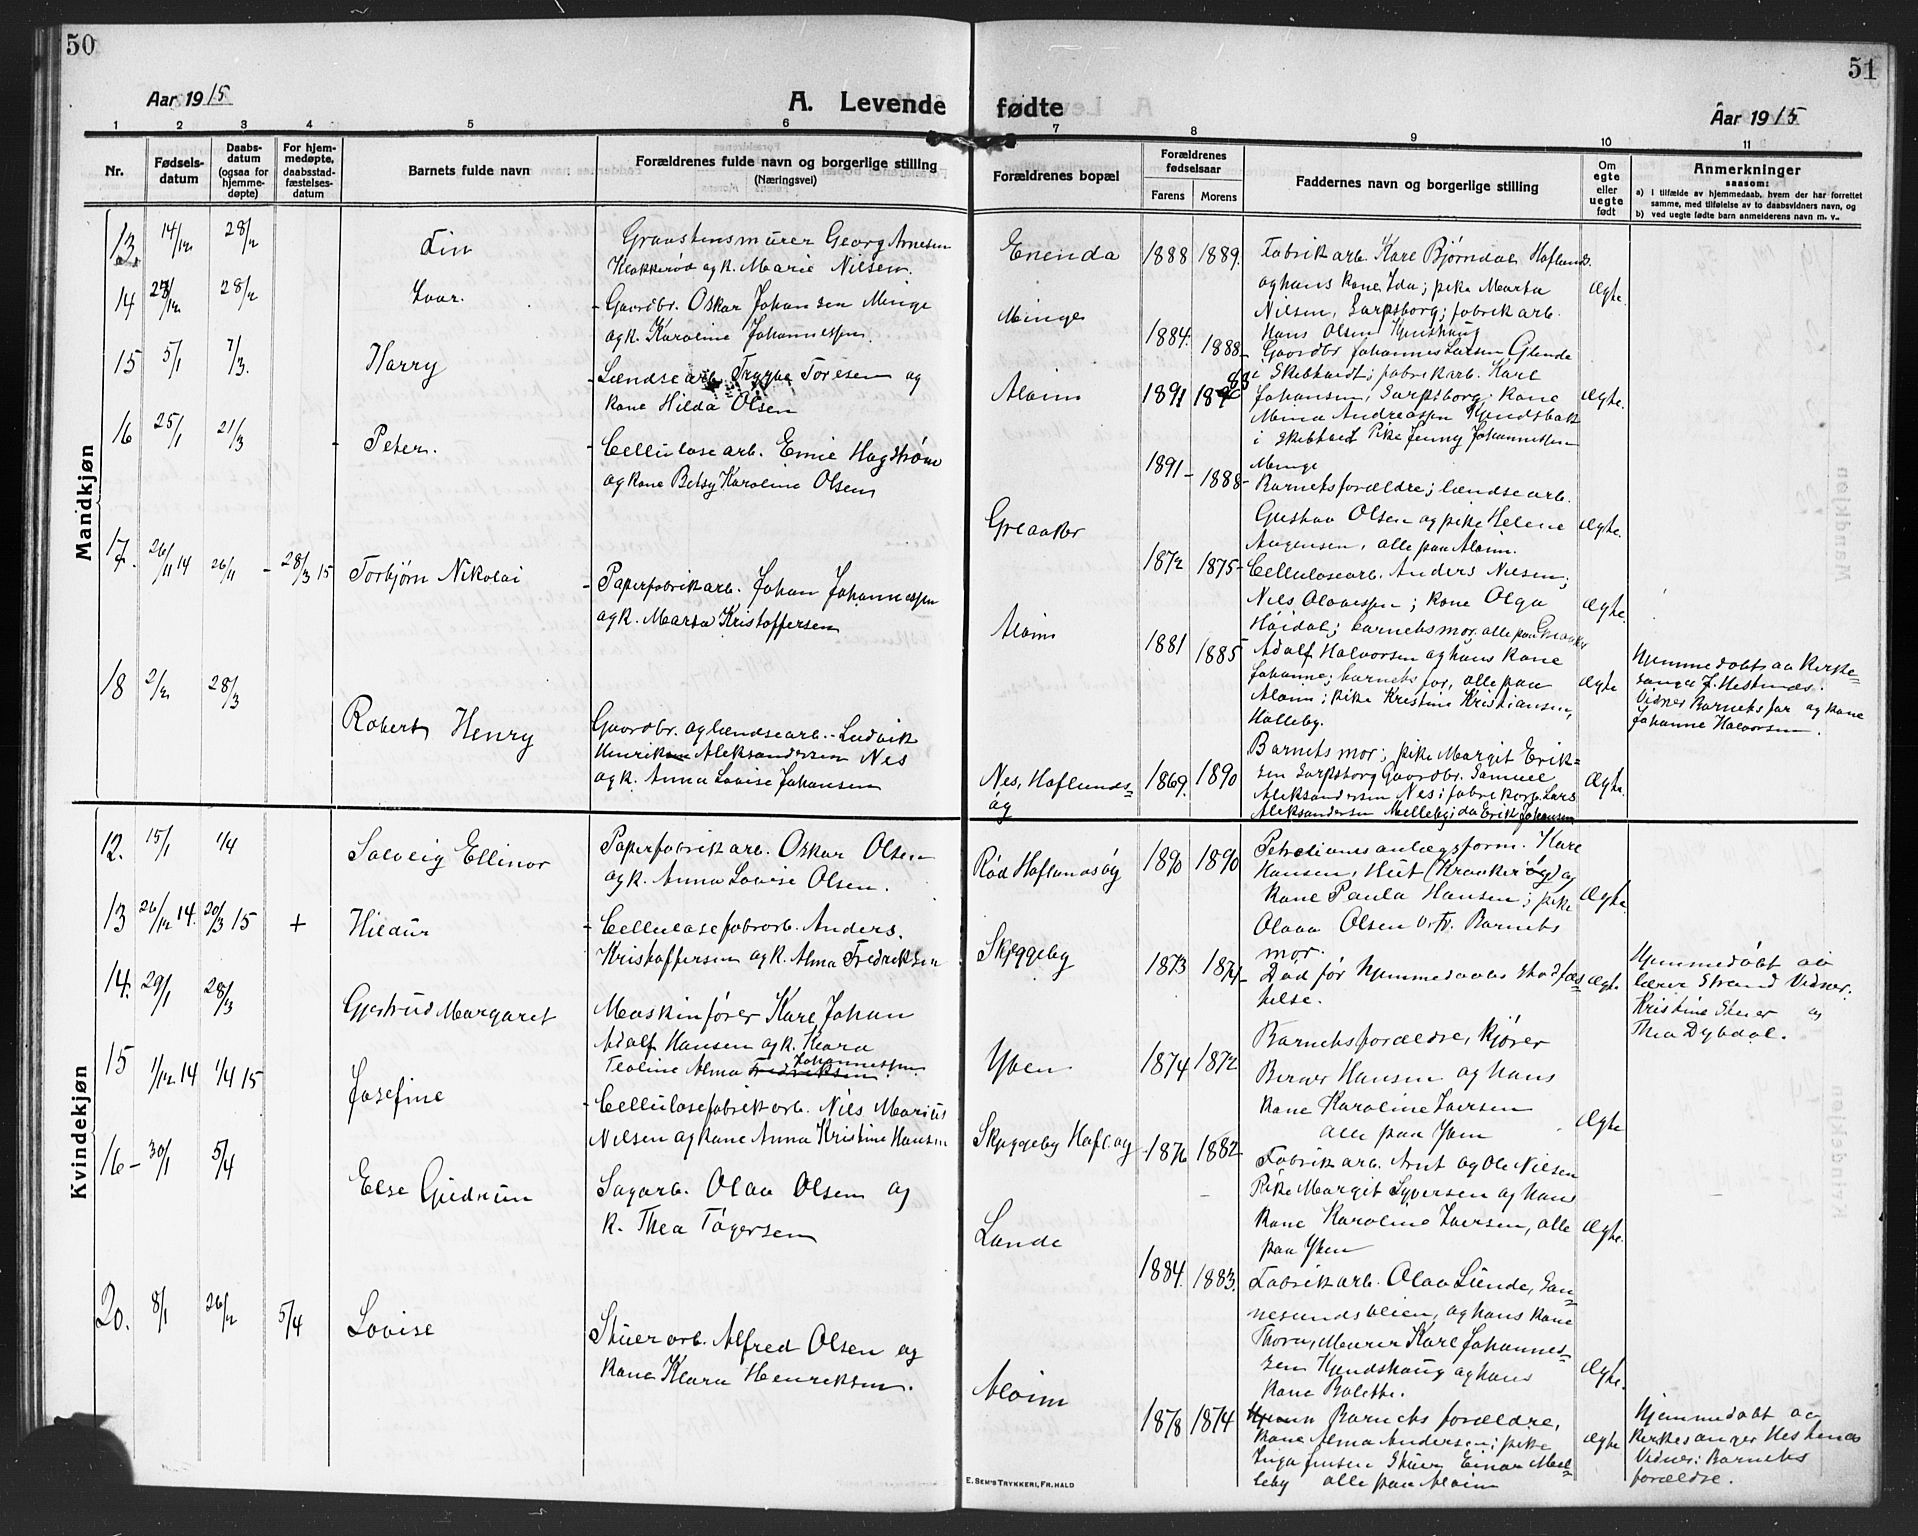 50
Aar 1915
A. Levende
1 2 3 4 5 6
Nr.
Fødsels-
datum
Daabs-
datum
(ogsaa for
hjemme-
døpte)
For hjem-
medøpte,
daabsstad-
fæstelses-
datum
Barnets fulde navn
Forældrenes fulde navn og borgerlige stilling
(Næringsvei)
Mandkjøn
13. 14/12 28/2
Graastensmurer Georg Arnesen
Klokkerød og k. Marie Nilsen.
14 28/2 Ivar.
Gaardbr. Oskar Johansen Minge
og k. Karoline Johannessen
15 5/1 7/3. Harry
Lændsearb. Trygve Toresen og
kone Hilda Olsen
16 25/1 21/3 Peter.
Cellulosearb. Emil Hagstrøm
og kone Betsy Karoline Olsen
17. 26/11 14 26/11 - 28/3 15 Torbjørn Nikolai
Papirfabrikarb. Johan Johannessen
og k. Marta Kristoffersen
18 2/2 28/3 Robert Henry
Gaardbr. og lændsearb. Ludvik
Henrik Aleksandersen Nes
og k. Anna Lovise Johansen
Kvindekjøn
12. 15/1 1/4 Solveig Ellinor
Papirfabrikarb. Oskar Olsen
og k. Anna Lovise Olsen.
13 26/12 14. 20/3 15 + Hildur
Cellulosefabrarb. Anders
Kristoffersen og k. Alma Fredriksen
14. 29/1 28/3 Gjertrud Margaret
Maskinfører Karl Johan
Adolf Hansen og k. Klara
Teoline Alma Fredriksen Johannessen
15 1/12 14 1/4 15 Josefine
Cellulosefabrikarb. Nils Marius
Nilsen og kone Anna Kristine Hansen
16 - 30/1 5/4 Else Gudrun
Sagarb. Olav Olsen og
k. Thea Tøgersen
20. 8/1 26/2 5/4 Lovise
Skuer arb. Alfred Olsen og
kone Klara Henriksen.
51
fødte
Aar 1915
7 8 9 10 11
Forældrenes bopæl
Forældrenes
fødselsaar
Farens Morens
Faddernes navn og borgerlige stilling
Om
egte
eller
uegte
født
Anmerkninger
saasom:
a) I tilfælde av hjemmedaab, hvem der har forrettet
samme, med tilføielse av to daabsvidners navn, og
b) ved uegte født barn anmelderens navn m. v.
Enenda 1888 1889. Fabrikarb. Karl Bjørndal Haflund.
og hans kone Ida; pike Marta
Nilsen, Sarpsborg; fabrikarb.
Hans Olsen Hjendshaug
Ægte.
Minge 1884. 1888 - Gaardbr Johannes Larsen Glende
i Skebhardt; fabrikarb. Karl
Johansen, Sarpsborg; kone
Mina Andreassen
i Skebhard Pike Jenny Johannessen
Minge
Ægte.
Alvim 1891
1891 - 1888 - Barnets forældre; lændsearb.
Gustav Olsen og pike Helene
Augensen, alle paa Alvim.
Ægte.
Greaaker 1872 1875 - Cellulosearb. Anders Nilsen;
Nils Olavessen; kone Olga
Høidal; barnets mor, alle paa Greaaker
Ægte
Alvim 1881 1885 Adolf Halvorsen og hans kone
Johanne; barnets far, alle paa
Alvim; pike Kristine Kristiansen,
Halleby.
Ægte
Hjemmedøbt av kirke-
sanger J. Hestenæs.
Vidner Barnets far og kone
Johanne Halvorsen.
Nes, Haflunds-
øg
1869. 1890 Barnets mor; pike Margit Erik-
sen Sarpsborg Gaardbr. Samuel
Aleksandersen Nes; fabrikarb. Lars
Aleksandersen Melleby; do Erik Johansen
Ægte.
Rød Haflundsøy 1890 1890 anlægsform. Karl
Hansen, Hut (Kraakerøy) og
kone Paula Hansen; pike
Olava Olsen Barnets
mor.
Ægte.
Skyggeby 1873 1874 - Død før hjemmedaabs stadfæs-
telse.
Ægte
Hjemmedøbt av
lærer Strand Vidner:
Kristine og
Thea Dybdal.
Yven 1874 1872 Barnets forældre, kjører
Berner Hansen og hans
kone Karoline Iversen
alle paa Yven
Ægte
Skyggeby Hafl.øy 1876 1882 - Fabrikarb. Arnt og Ole Nilsen
Pike Margit Syversen og hans
kone Karoline Iversen, alle
paa Yven
Ægte.
Lande 1884. 1883. Fabrikarb. Olav Lunde, San-
nesundsveien, og hans kone
Thora, Murer Karl Johannes-
sen Hjendshaug og hans
kone Bolette.
Ægte.
Alvim 1878 1874 Barnets forældre,
kone Alma Andersen; pike
Inga Jensen Skuer Einar Mel-
leby alle paa Alvim
Ægte
Hjemmedøbt av
kirkesanger Hestenæs
Vidner: Barnets
forældre.
E. SEM'S TRYKKERI, FR.HALD